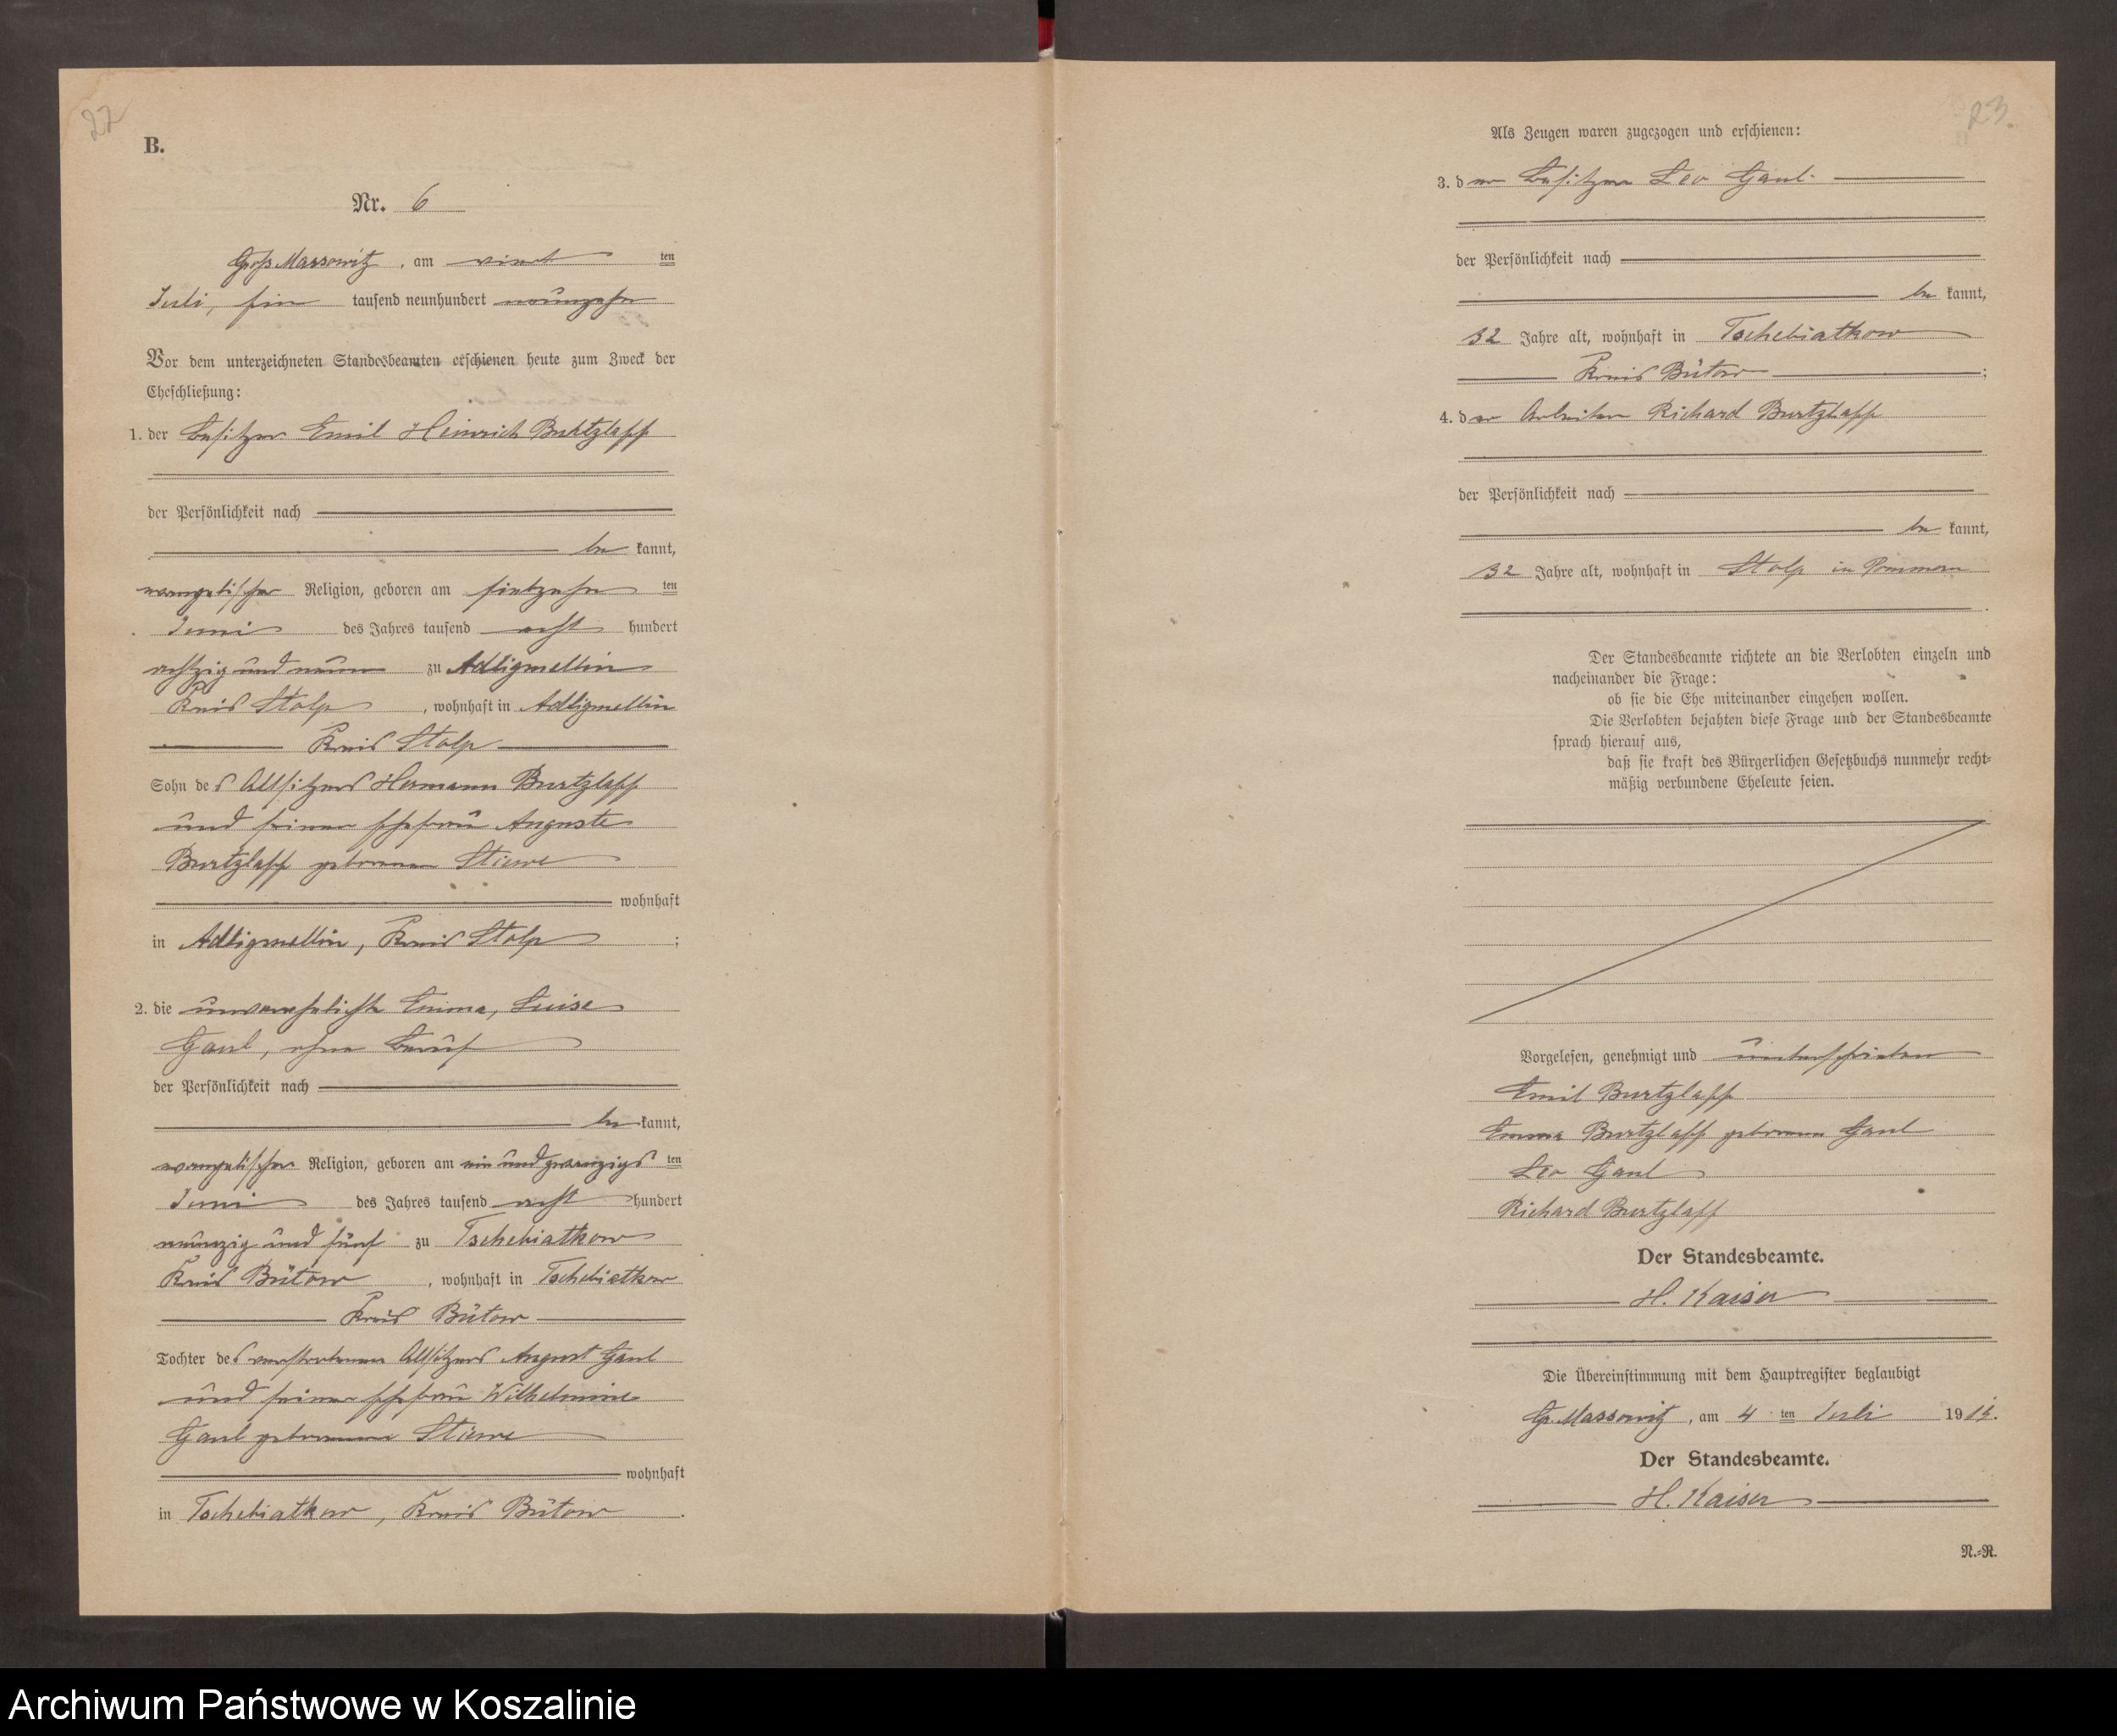 22
B.
Nr. 6
Groß Massowitz, am viert ten
Juli, ein tausend neunhundert neunzehn
Vor dem unterzeichneten Standesbeamten erschienen heute zum Zweck der
Eheschließung:
1. der Besitzer Emil Heinrich Burtzlaff
der Persönlichkeit nach
be kannt,
evangelischer Religion, geboren am siebzehn ten
Juni des Jahres tausend acht hundert
achtzig und neun zu Adligmellin
Kreis Stolp, wohnhaft in Adligmellin
Kreis Stolp
Sohn des Altsitzers Hermann Burtzlaff
und seiner Ehefrau Auguste
Burtzlaff geborenen Stiewe
wohnhaft
in Adligmellin, Kreis Stolp ;
2. die unverehelichte Emma, Luise
Gaul, ohne Beruf
der Persönlichkeit nach
be kannt,
evangelischer Religion, geboren am ein und zwanzigs ten
Juni des Jahres tausend acht hundert
neunzig und fünf zu Tschebiatkow
Kreis Bütow, wohnhaft in Tschebiatkow
Kreis Bütow
Tochter des verstorbenen Altsitzers August Gaul
und seiner Ehefrau Wilhelmine
Gaul geborenen Stiewe
wohnhaft
in Tschebiatkow, Kreis Bütow.
23
Als Zeugen waren zugezogen und erschienen:
3. der Besitzer Leo Gaul
der Persönlichkeit nach
be kannt,
32 Jahre alt, wohnhaft in Tschebiatkow
Kreis Bütow ;
4. der Arbeiter Richard Burtzlaff
der Persönlichkeit nach
be kannt,
32 Jahre alt, wohnhaft in Stolp in Pommern
.
Der Standesbeamte richtete an die Verlobten einzeln und
nacheinander die Frage:
ob sie die Ehe miteinander eingehen wollen.
Die Verlobten bejahten diese Frage und der Standesbeamte
sprach hierauf aus,
daß sie kraft des Bürgerlichen Gesetzbuchs nunmehr recht-
mäßig verbundene Eheleute seien.
Vorgelesen, genehmigt und unterschrieben
Emil Burtzlaff
Emma Burtzlaff geborene Gaul
Leo Gaul
Richard Burtzlaff
Der Standesbeamte.
H. Kaiser
Die Übereinstimmung mit dem Hauptregister beglaubigt
Gr. Massowitz, am 4 ten Juli 19
Der Standesbeamte.
H. Kaiser
N.-R.
Archiwum Państwowe w Koszalinie